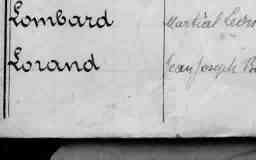 Lombard Martial
Lorand Jean Joseph